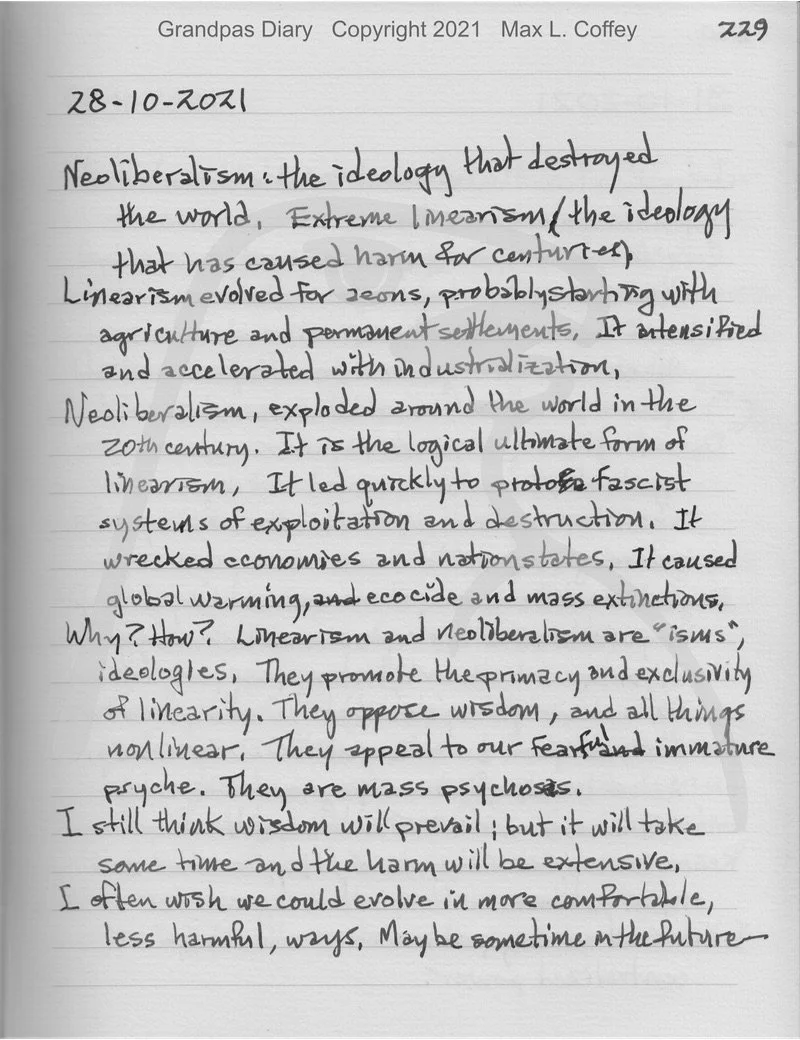 Grandpas Diary Copyright 2021 Max L. Coffey 229
28-10-2021
Neoliberalism: the ideology that destroyed
the world. Extreme linearism (the ideology
that has caused harm for centuries)
Linearism evolved for aeons, probably starting with
agriculture and permanent settlements. It intensified
and accelerated with industrialization,
Neoliberalism, exploded around the world in the
20th century. It is the logical ultimate form of
linearism, It led quickly to fascist
systems of exploitation and destruction. It
wrecked economies and nation states. It caused
global warming, and ecocide and mass extinctions.
Why? How? Linearism and neoliberalism are "isms",
ideologies. They promote the primacy and exclusivity
of linearity. They oppose wisdom, and all things
nonlinear. They appeal to our fearful and immature
psyche. They are mass psychosis.
I still think wisdom will prevail; but it will take
some time and the harm will be extensive,
I often wish we could evolve in more comfortable,
less harmful, ways. Maybe sometime in the future